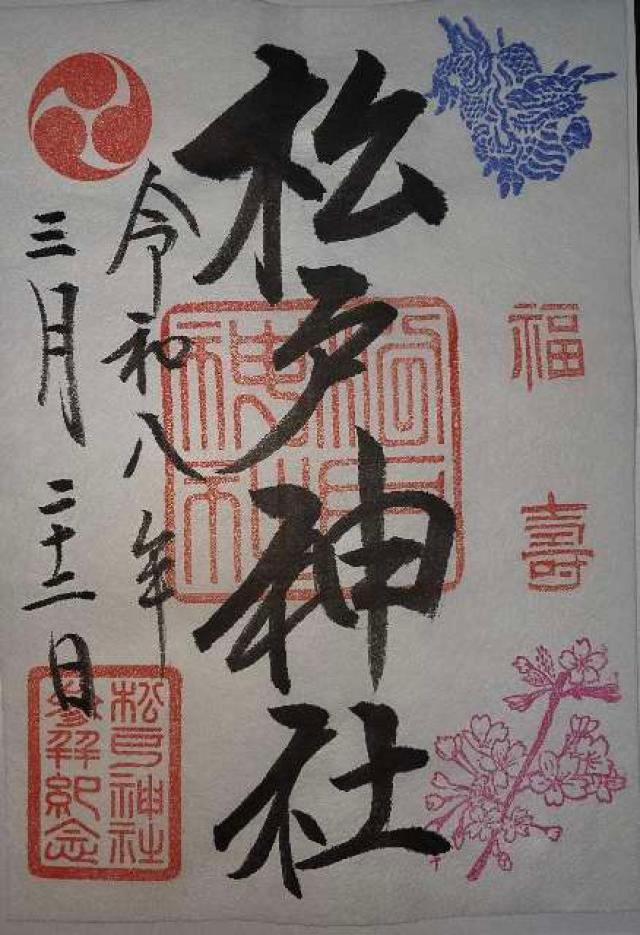 福壽
松戸神社
松戸神社
令和八年
三月二十二日
松戸神社
参拜紀念